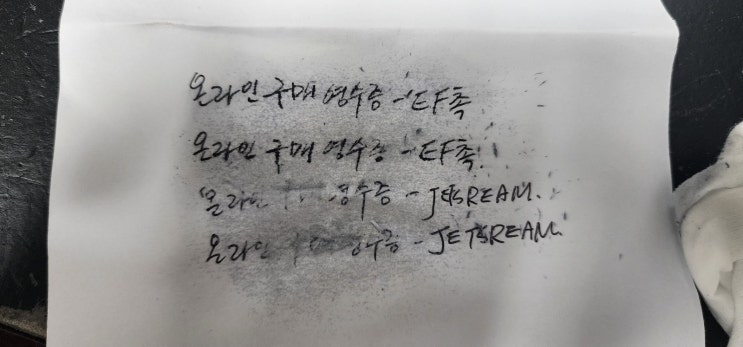 온라인 구매 영수증 - EF촉
온라인 구매 영수증 - EF촉
온라인 영수증 - JETSREAM.
온라인 - JETSREAM.